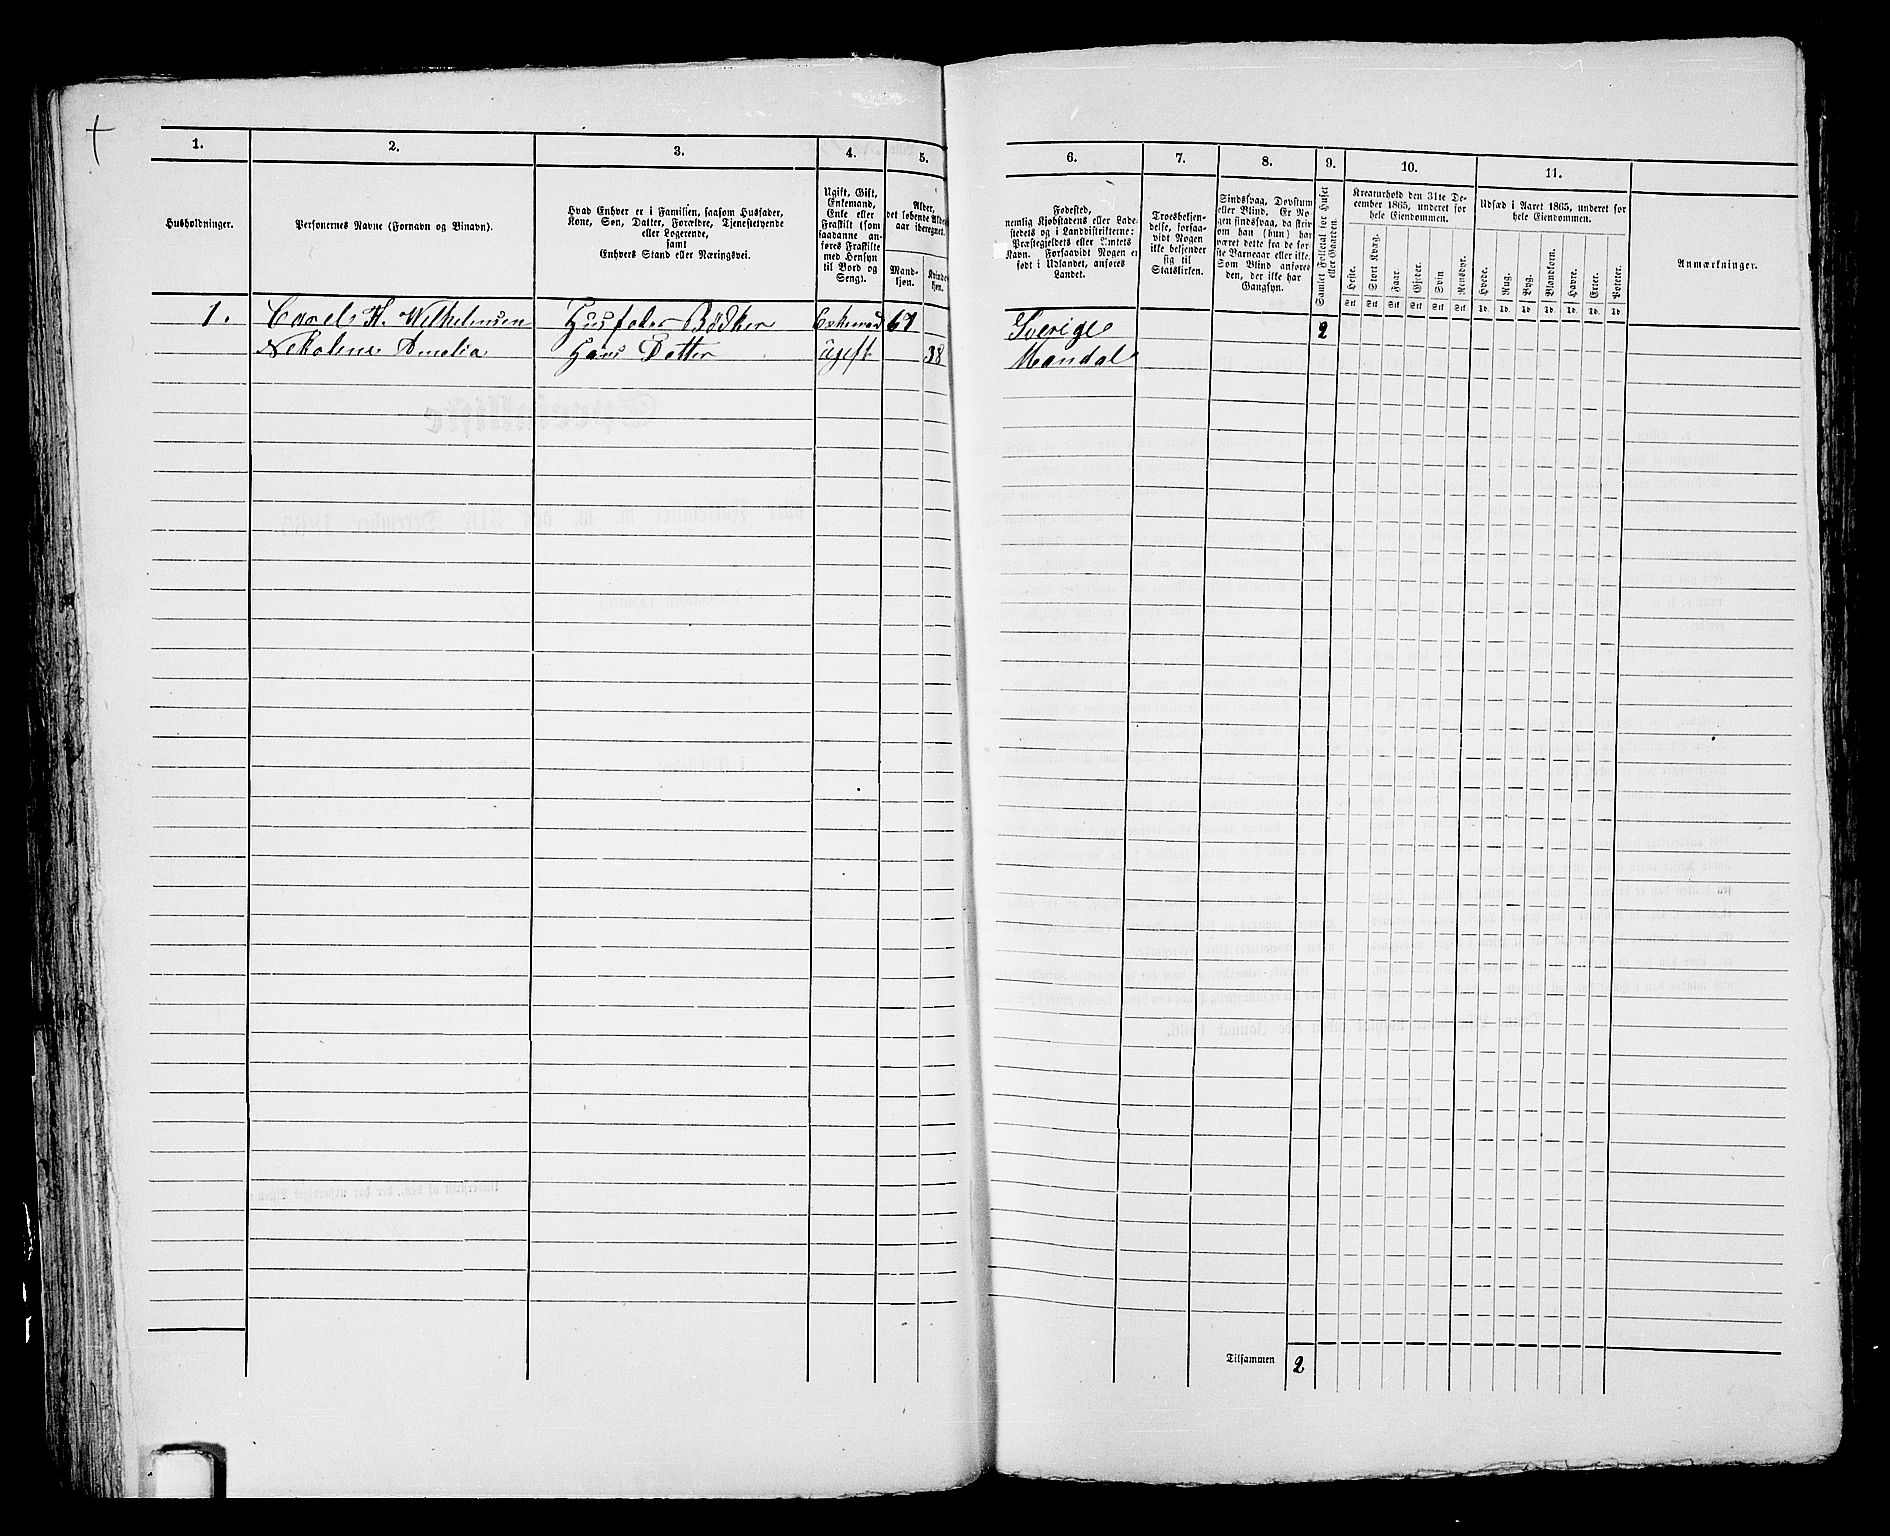 1. 2. 3. 4. 5. 6. 7. 8. 9. 10. 11.
Husholdninger.
Personernes Navne (Fornavn og Binavn).
Hvad Enhver er i Familien, saasom Husfader,
Kone, Søn, Datter, Forældre, Tjenestetyende
eller Logerende,
samt
Enhvers Stand eller Næringsvei.
Ugift, Gift,
Enkemand,
Enke eller
Fraskilt (som
saadanne an-
føres Fraskilte
med Hensyn
til Bord og
Seng).
Alder,
det løbende Alders-
aar iberegnet.
Mand-
kjøn.
Kvinde-
kjøn.
Fødested,
nemlig Kjøbstadens eller Lade-
stedets og i Landdistrikterne:
Præstegjeldets eller Amtets
Navn. Forsaavidt Nogen er
født i Udlandet, anføres
Landet.
Troesbekjen-
delse, forsaa-
vidt Nogen
ikke bekjender
sig til
Statskirken.
Sindssvag, Døvstum
eller Blind. Er No-
gen sindssvag, da skriv
om han (hun) har
været dette fra de før-
ste Barneaar eller ikke.
Som Blind anføres
den, der ikke har
Gangsyn.
Samlet Folketal for Huset
eller Gaarden.
Kreaturhold den 31te De-
cember 1865, underet for
hele Eiendommen.
Heste. Stort Kvæg. Faar. Gjeder. Svin. Rensdyr.
Stk. Stk. Stk. Stk. Stk. Stk.
Udsæd i Aaret 1865, underet for
hele Eiendommen.
Hvede. Rug. Byg. Blandkorn. Havre. Erter. Poteter.
Td. Td. Td. Td. Td. Td. Td.
Anmærkninger.
1. Carel H. Wilhelmsen Husfader Bødker Enkemand 67 Sverige 2
Nekoline Amelia Hans Datter ugift 38 Mandal
Tilsammen 2